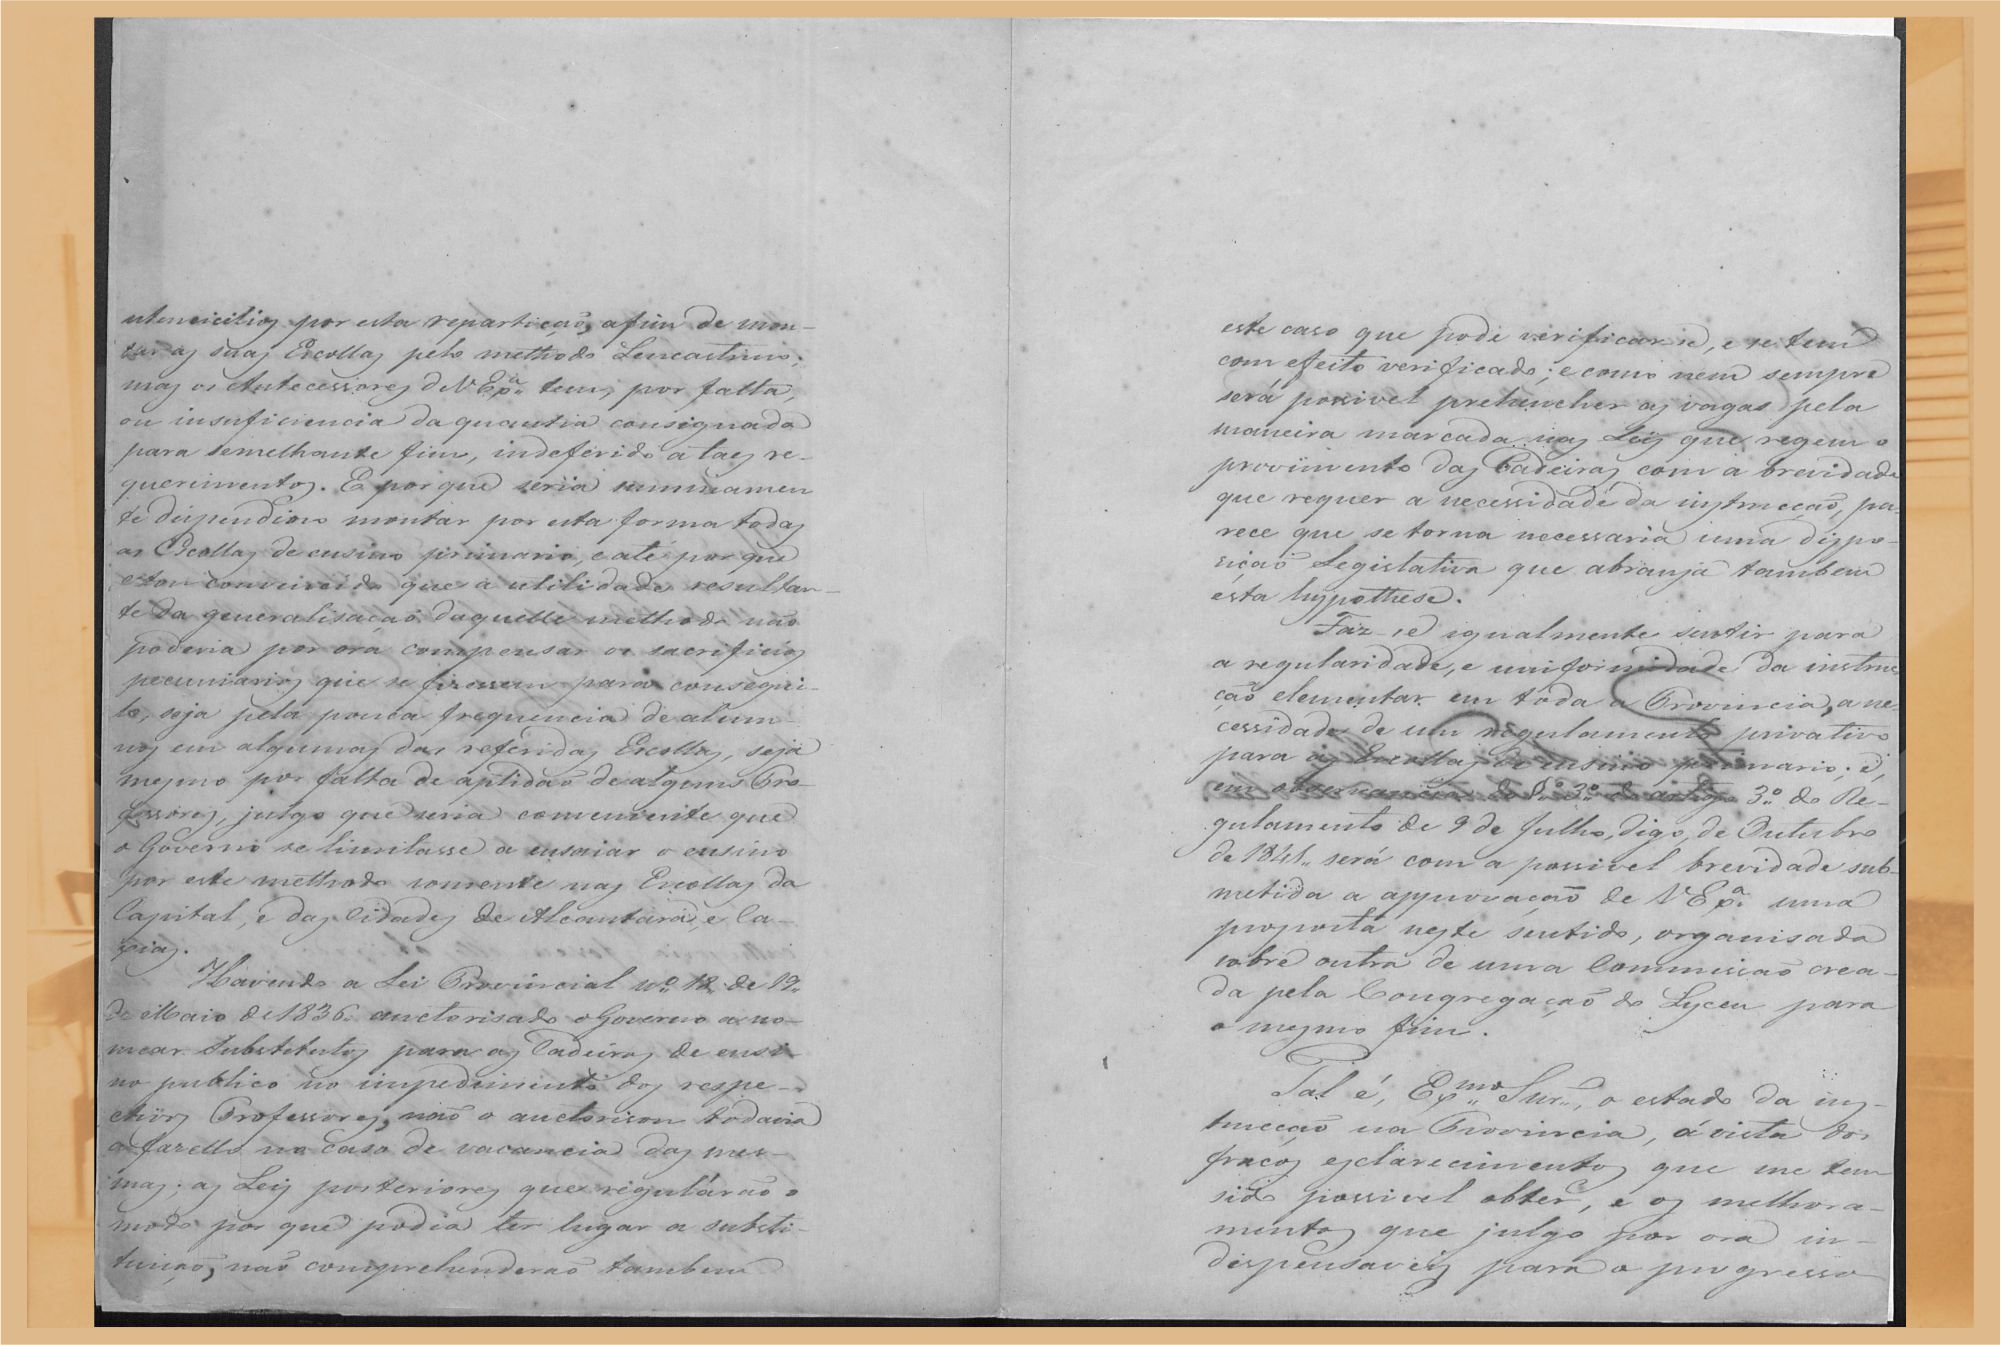 utencicilios por esta repartição, afim de mon-
tar as suas Escollas pelo methodo Lencastrino;
mas os Antecessores de V Exª. tem, por falta,
ou insuficiencia da quantia consignada
para semelhante fim, indeferido a taes re-
querimentos. E porque seria summamen
te dispendioso montar por esta forma todas
as Escollas de ensino primario, e até por que
estou convencido que a utilidade resultan-
te da generalisação daquelle methodo não
poderia por ora compensar os sacrificios
pecuniarios que se fizessem para consegui-
lo, seja pela pouca frequencia de alum-
nos em algumas das referidas Escollas, seja
mesmo por falta de aptidão de alguns Pro-
fessores, julgo que seria conveniente que
o Governo se limitasse a ensaiar o ensino
por este methodo somente nas Escollas da
Capital, e das Cidades de Alcantara, e Ca-
xias.
Havendo a Lei Provincial nº. 18 de 19
de Maio de 1836 auctorisado o Governo a no-
mear Substitutos para as Cadeiras de ensi-
no publico no impedimento dos respe-
ctivos Professores, não o auctorisou todavia
a fazello no caso de vacancia das mes-
mas; as Leis posteriores que regulárão o
modo por que podia ter lugar a substi-
tuição, não comprehenderão tambem
este caso que pode verificar-se, e se tem
com efeito verificado; e como nem sempre
será possivel prehencher as vagas pela
maneira marcada nas Leis que regem o
provimento das Cadeiras com a brevidade
que requer a necessidade da instrucção, pa-
rece que se torna necessaria uma dispo-
sição Legislativa que abranja tambem
esta hypothese.
Faz-se igualmente sentir para
a regularidade, e uniformidade da instruc
ção elementar em toda a Provincia, a ne-
cessidade de um regulamento privativo
para as Escollas de ensino primario; e,
em observancia do §º 3º do artigo 3º do Re-
gulamento de 9 de Julho, digo, de Outubro
de 1841 será com a possivel brevidade sub-
metida a approvação de V Exª. uma
proposta neste sentido, organisada
sobre outra de uma Commissão crea-
da pela Congregação do Lyceu para
o mesmo fim.
Tal é, Exmo. Snr., o estado da ins-
trucção na Provincia, á vista dos
fracos esclarecimentos que me tem
sido possivel obter, e os melhora-
mentos que julgo por ora in-
dispensaveis para o progresso